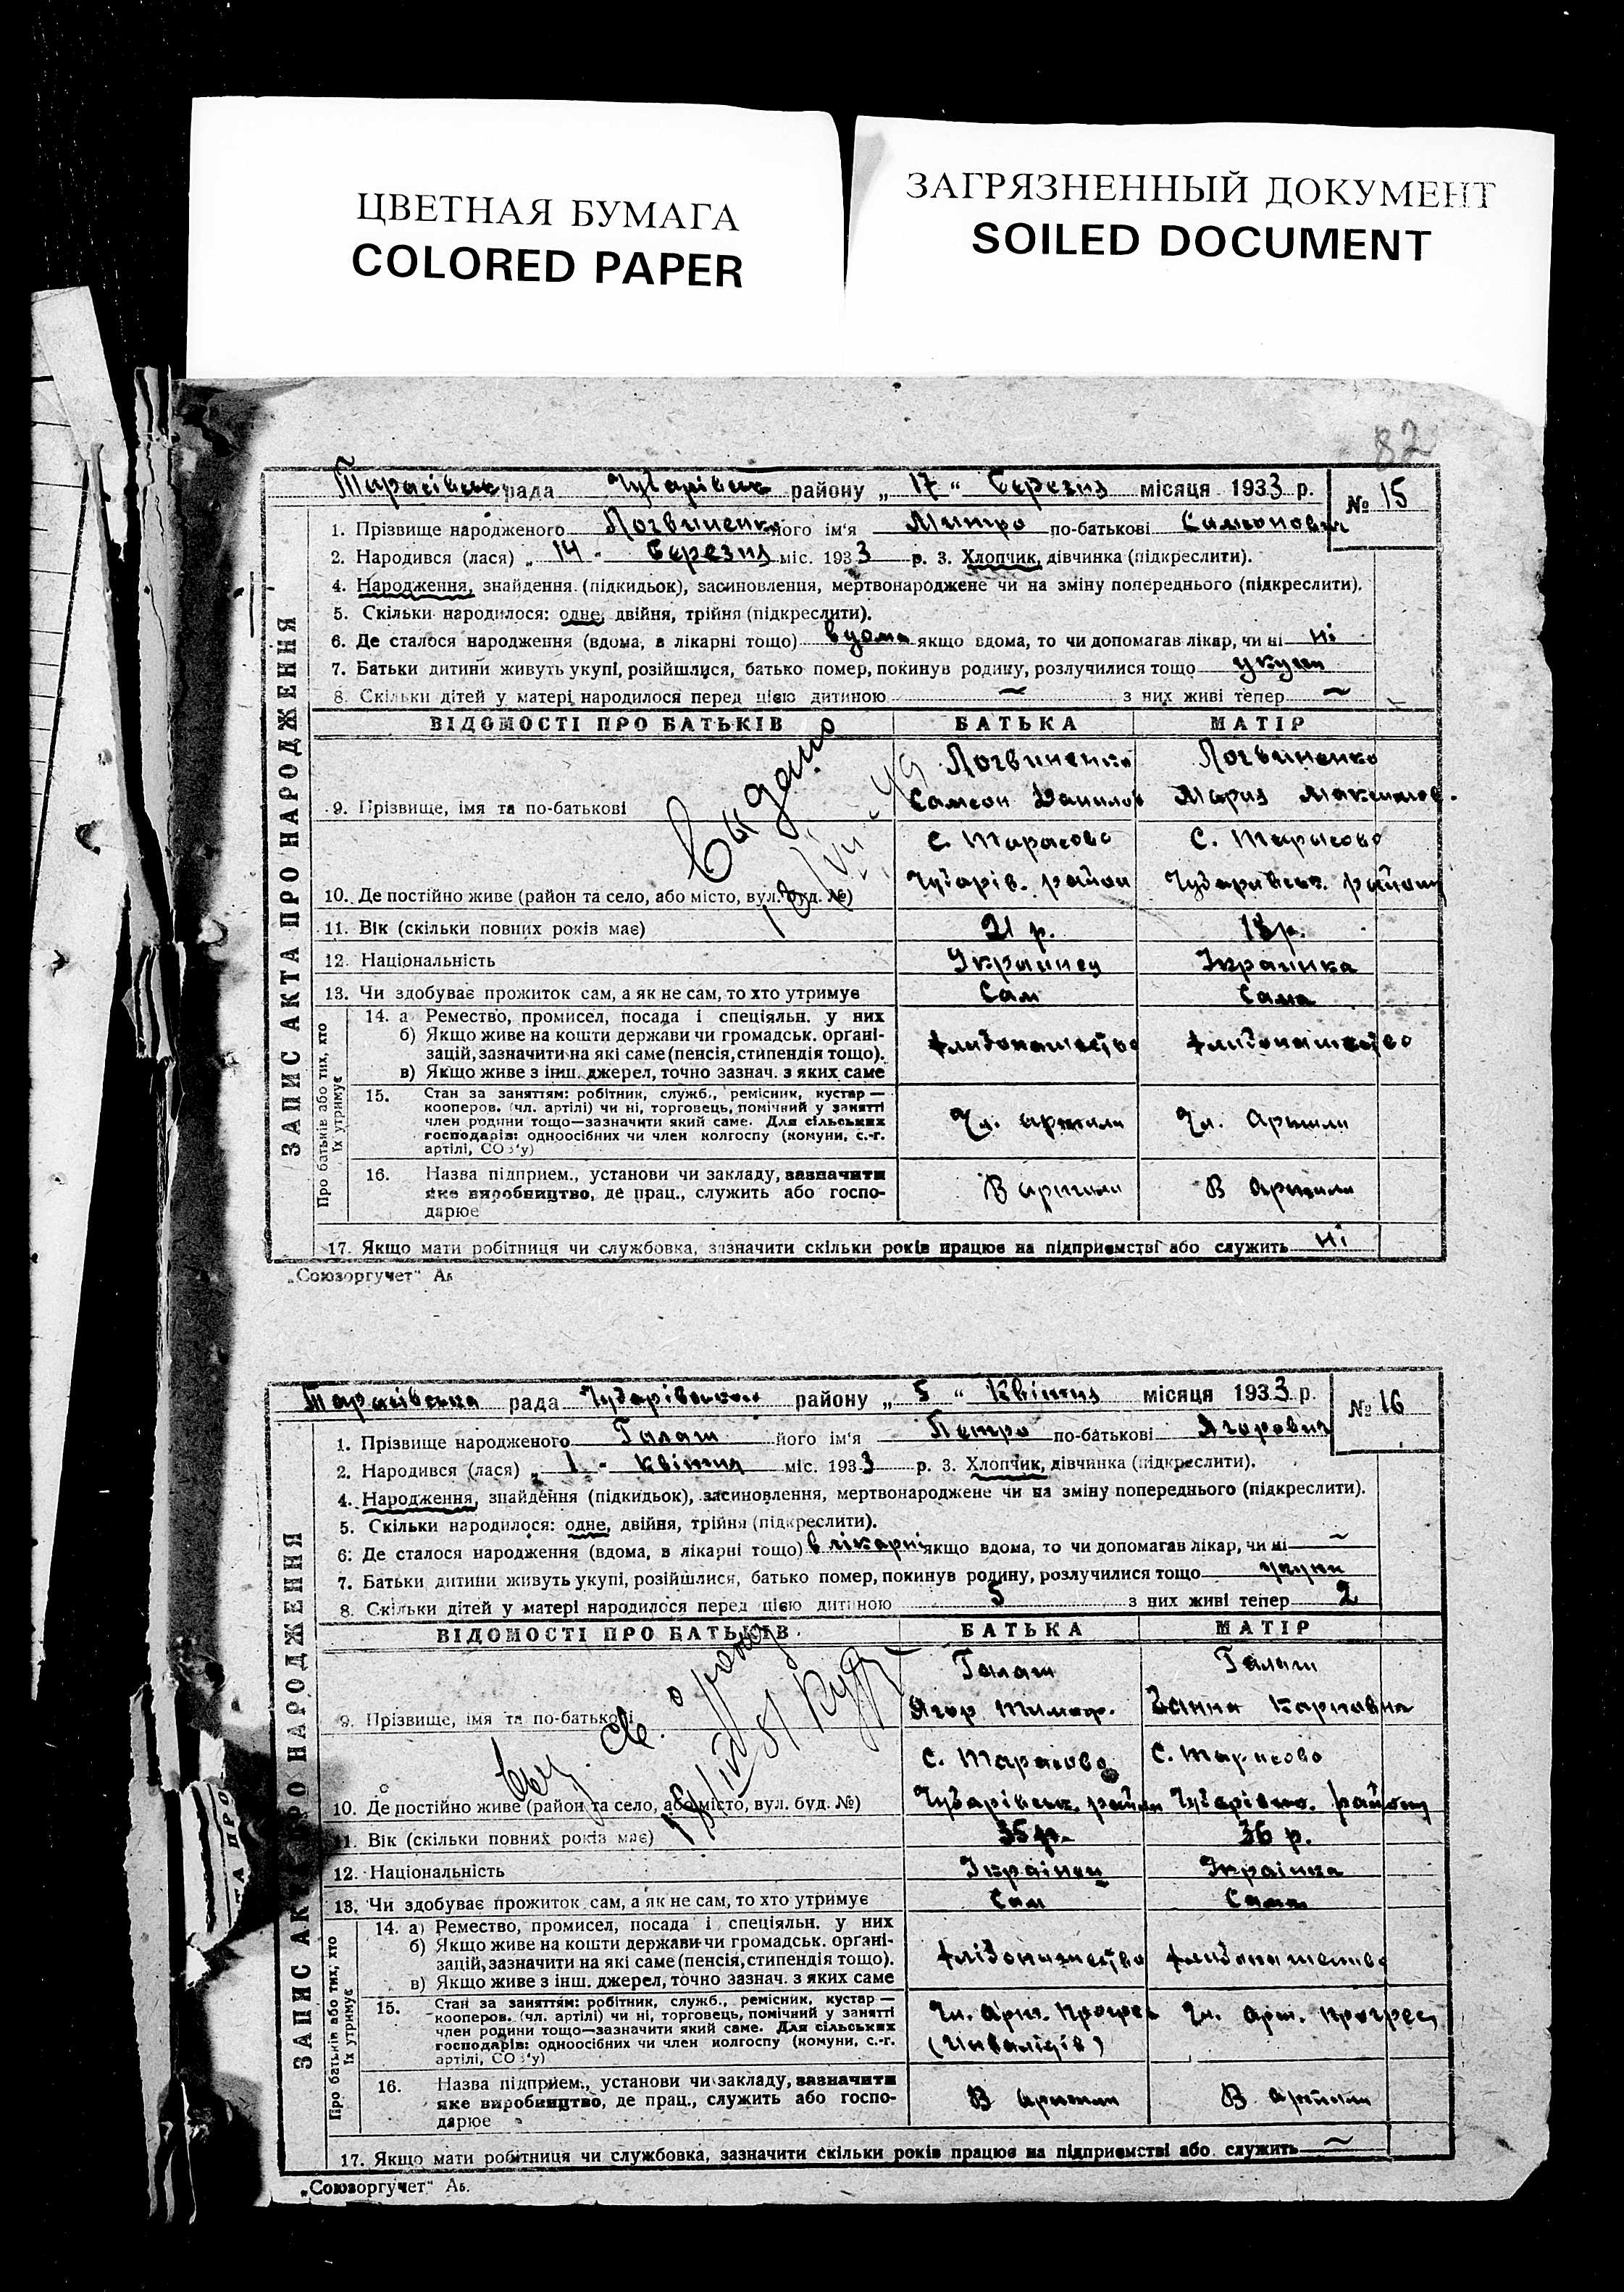 ЦВЕТНАЯ БУМАГА
COLORED PAPER
ЗАГРЯЗНЕННЫЙ ДОКУМЕНТ
SOILED DOCUMENT
82
ЗАПИС АКТА ПРО НАРОДЖЕННЯ
Тарасівськ рада Чубарівськ району „ 17 " Березня місяця 1933 р. № 15
1. Прізвище народженого Логвиненко його ім'я Митро по-батькові Самсонович
2. Народився (лася) „ 14 - Березня міс. 1933 р. 3. Хлопчик, дівчинка (підкреслити).
4. Народження, знайдення (підкидьок), засиновлення, мертвонароджене чи на зміну попереднього (підкреслити).
5. Скільки народилося: одне, двійня, трійня (підкреслити).
6. Де сталося народження (вдома, в лікарні тощо) вдома якщо вдома, то чи допомагав лікар, чи ні ні
7. Батьки дитини живуть укупі, розійшлися, батько помер, покинув родину, розлучилися тощо укупи
8. Скільки дітей у матері народилося перед цією дитиною ~ з них живі тепер ~
ВІДОМОСТІ ПРО БАТЬКІВ БАТЬКА МАТІР
Выдано
Логвиненко Логвиненко
9. Прізвище, імя та по-батькові Самсон Данилов Мария Максимов.
с. Тарасово с. Тарасово
10. Де постійно живе (район та село, або місто, вул. буд. №) Чубарів. район Чубарівськ. району
11. Вік (скільки повних років має) 21 р. 18 р.
12. Національність Українец Українка
13. Чи здобуває прожиток сам, а як не сам, то хто утримує Сам Сама
Про батьків або тих, хто їх утримує
14. а Ремество, промисел, посада і спеціяльн. у них
б) Якщо живе на кошти держави чи громадськ. органі-
зацій, зазначити на які саме (пенсія, стипендія тощо).
в) Якщо живе з інш. джерел, точно зазнач. з яких саме
15. Стан за заняттям: робітник, служб., ремісник, кустар —
кооперов. (чл. артілі) чи ні, торговець, помічний у занятті
член родини тощо—зазначити який саме. Для сільських
господарів: одноосібних чи член колгоспу (комуни, с.-г.
артілі, СОЗ'у)
Чл. артили Чл. Артили
16. Назва підприєм., установи чи закладу, зазначити
яке виробництво, де прац., служить або госпо-
дарює
В артили В Артили
17. Якщо мати робітниця чи службовка, зазначити скільки років працює на підприємстві або служить ні
„Союзоргучет" Аб
ЗАПИС АКТА ПРО НАРОДЖЕННЯ
Тарасівська рада Чубарівського району „ 5 " Квітня місяця 1933 р. № 16
1. Прізвище народженого Галат його ім'я Петро по-батькові Ягорович
2. Народився (лася) „ 1 - Квітня міс. 1933 р. 3. Хлопчик, дівчинка (підкреслити).
4. Народження, знайдення (підкидьок), засиновлення, мертвонароджене чи на зміну попереднього (підкреслити).
5. Скільки народилося: одне, двійня, трійня (підкреслити).
6. Де сталося народження (вдома, в лікарні тощо) в лікарні якщо вдома, то чи допомагав лікар, чи ні ~
7. Батьки дитини живуть укупі, розійшлися, батько помер, покинув родину, розлучилися тощо укупи
8. Скільки дітей у матері народилося перед цією дитиною 5 з них живі тепер 2
ВІДОМОСТІ ПРО БАТЬКІВ БАТЬКА МАТІР
Галат Галат
9. Прізвище, імя та по-батькові Ягор Тимоф. Ганна Карповна
с. Тарасово с. Тарасово
10. Де постійно живе (район та село, або місто, вул. буд. №) Чубарівськ. район Чубарівськ. району
11. Вік (скільки повних років має) 35 р. 36 р.
12. Національність Українец Українка
13. Чи здобуває прожиток сам, а як не сам, то хто утримує Сам Сама
Про батьків або тих, хто їх утримує
14. а) Ремество, промисел, посада і спеціяльн. у них
б) Якщо живе на кошти держави чи громадськ. органі-
зацій, зазначити на які саме (пенсія, стипендія тощо).
в) Якщо живе з інш. джерел, точно зазнач. з яких саме
15. Стан за заняттям: робітник, служб., ремісник, кустар —
кооперов. (чл. артілі) чи ні, торговець, помічний у занятті
член родини тощо—зазначити який саме. Для сільських
господарів: одноосібних чи член колгоспу (комуни, с.-г.
артілі, СОЗ'у)
Чл. Арт. Прогрес Чл. арт. прогрес
(Инвалідів)
16. Назва підприєм., установи чи закладу, зазначити
яке виробництво, де прац., служить або госпо-
дарює
В артили В артили
17. Якщо мати робітниця чи службовка, зазначити скільки років працює на підприємстві або служить ~
„Союзоргучет" Аб.